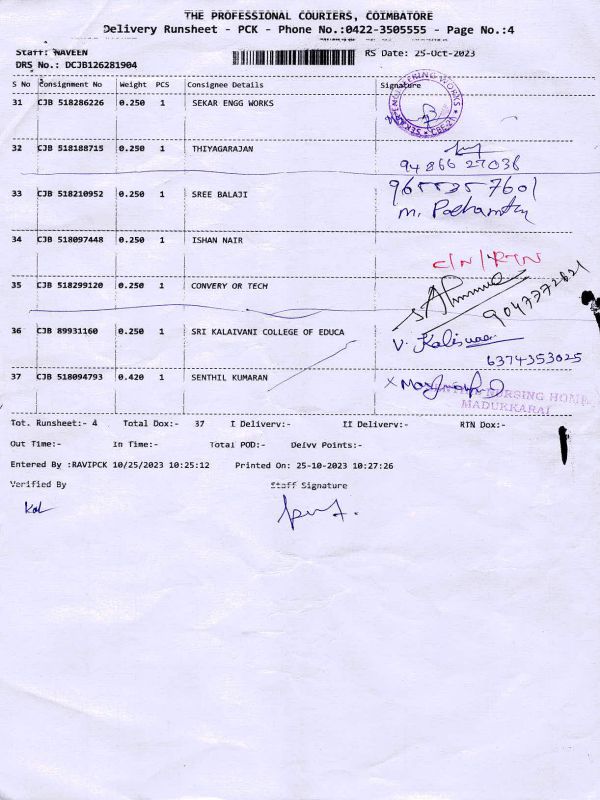 THE PROFESSIONAL COURIERS, COIMBATORE
Delivery Runsheet - PCK - Phone No.:0422-3505555 - Page No.:4
Staff: NAVEEN
RS Date: 25-Oct-2023
DRS No.: DCJB126281904
S No Consignment No Weight PCS Consignee Details Signature
31 CJB 518286226 0.250 1 SEKAR ENGG WORKS
32 CJB 518188715 0.250 1 THIYAGARAJAN
94866 27038
33 CJB 518210952 0.250 1 SREE BALAJI
34 CJB 518097448 0.250 1 ISHAN NAIR
C/N/RTN
35 CJB 518299120 0.250 1 CONVERY OR TECH
9047372621
36 CJB 89931160 0.250 1 SRI KALAIVANI COLLEGE OF EDUCA
6374353025
37 CJB 518094793 0.420 1 SENTHIL KUMARAN
NURSING HOME
MADUKKARAI
Tot. Runsheet:- 4 Total Dox:- 37 I Delivery:- II Delivery:- RTN Dox:-
Out Time:- In Time:- Total POD:- Delvy Points:-
Entered By :RAVIPCK 10/25/2023 10:25:12 Printed On: 25-10-2023 10:27:26
Verified By Staff Signature